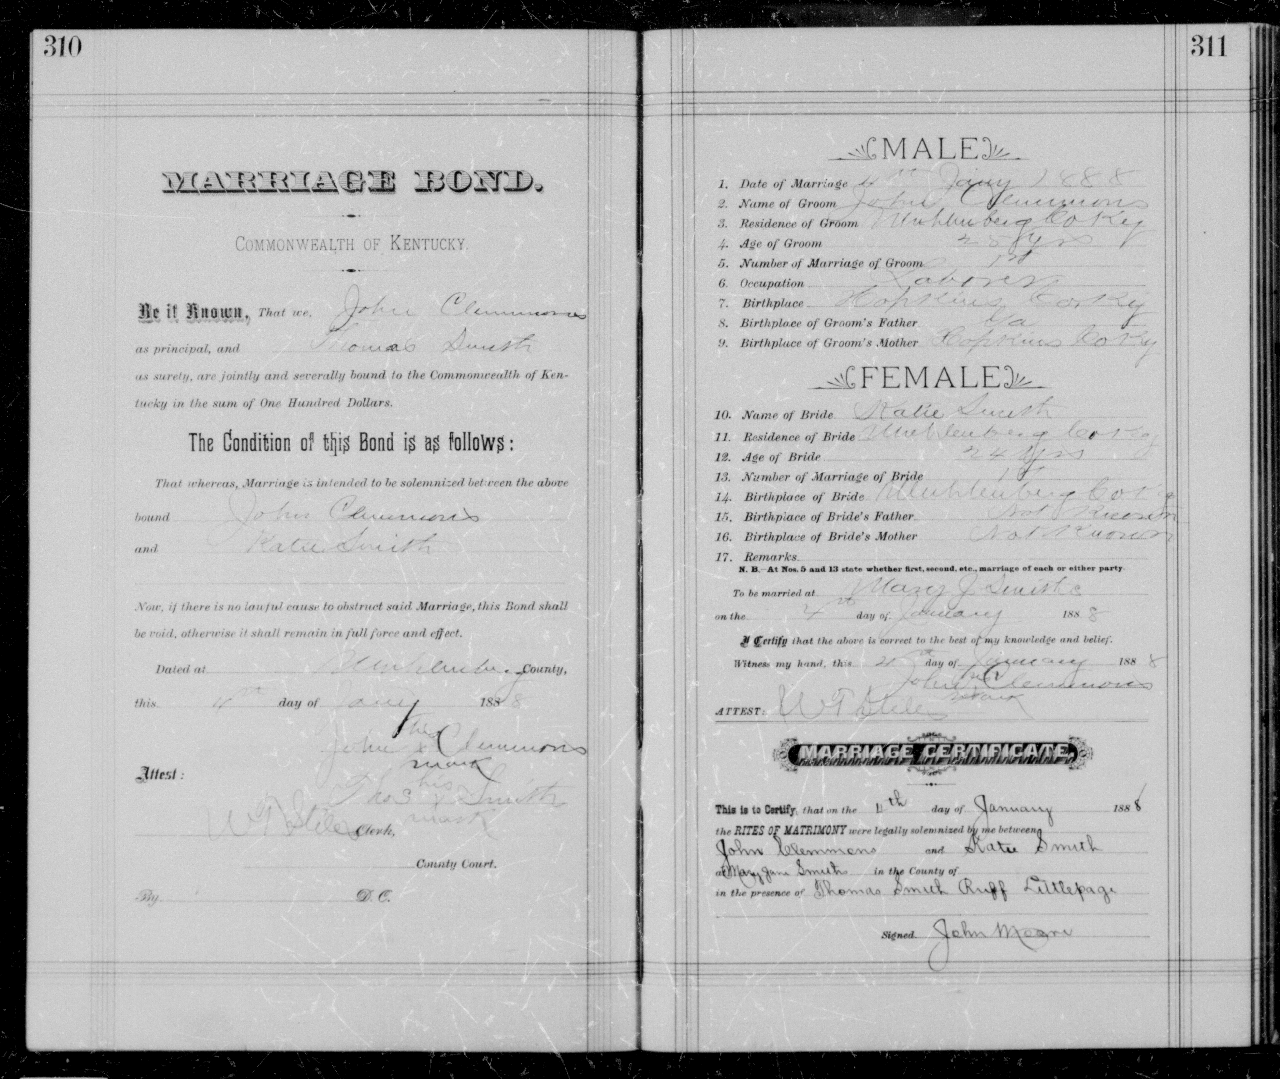 310
MARRIAGE BOND.
COMMONWEALTH OF KENTUCKY.
Be it Known, That we, John Clemmons
as principal, and Thomas Smith
as surety, are jointly and severally bound to the Commonwealth of Ken-
tucky in the sum of One Hundred Dollars.
The Condition of this Bond is as follows:
That whereas, Marriage is intended to be solemnized between the above
bound John Clemmons
and Katie Smith
Now, if there is no lawful cause to obstruct said Marriage, this Bond shall
be void, otherwise it shall remain in full force and effect.
Dated at Muhlenberg County,
this 4th day of Jany 1888
his
John x Clemmons
mark
Attest:
his
Thos x Smith
mark
W T Stiles Clerk,
County Court.
By D. C.
311
MALE
1. Date of Marriage 4th Jany 1888
2. Name of Groom John Clemmons
3. Residence of Groom Muhlenberg Co Ky
4. Age of Groom 25 yrs
5. Number of Marriage of Groom 1st
6. Occupation Laborer
7. Birthplace Hopkins Co Ky
8. Birthplace of Groom's Father Va
9. Birthplace of Groom's Mother Hopkins Co Ky
FEMALE
10. Name of Bride Katie Smith
11. Residence of Bride Muhlenberg Co Ky
12. Age of Bride 24 yrs
13. Number of Marriage of Bride 1st
14. Birthplace of Bride Muhlenberg Co Ky
15. Birthplace of Bride's Father Not Known
16. Birthplace of Bride's Mother Not Known
17. Remarks
N. B.—At Nos. 5 and 13 state whether first, second, etc., marriage of each or either party
To be married at Mary J. Smiths
on the 4th day of January 1888
I Certify that the above is correct to the best of my knowledge and belief.
Witness my hand, this 4th day of January 1888
his
John x Clemmons
mark
ATTEST: W T Stiles
MARRIAGE CERTIFICATE.
This is to Certify, that on the 4th day of January 1888
the RITES OF MATRIMONY were legally solemnized by me between
John Clemmens and Katie Smith
at Mary Jane Smiths in the County of
in the presence of Thomas Smith Ruff Littlepage
Signed John Moore